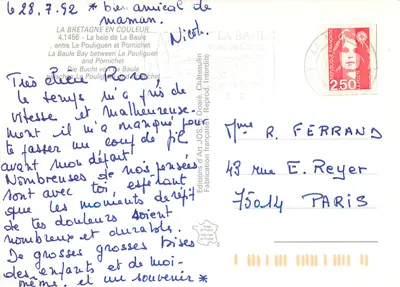 le 28.7.92 * bien amical de
maman.
Nicole.
LA BRETAGNE EN COULEUR
4.1456 - La baie de La Baule
entre Le Pouliguen et Pornichet
La Baule Bay between Le Pouliguen
and Pornichet
Die Bucht von La Baule
Très chère Roro
le temps m'a pris de
vitesse et malheureuse-
ment il m'a manqué pour
te passer un coup de fil
avant mon départ
Nombreuses de nos pensées
sont avec toi, espérant
que les moments de répit
de tes douleurs soient
nombreux et durables.
De grosses grosses bises
des enfants et de moi-
même, et un souvenir *
Editions d'Art JOS
Fabrication Française Reprod. Interdite
LA BAULE
REPUBLIQUE FRANÇAISE
2,50
Mme R. FERRAND
43 rue E. Reyer
75014 PARIS